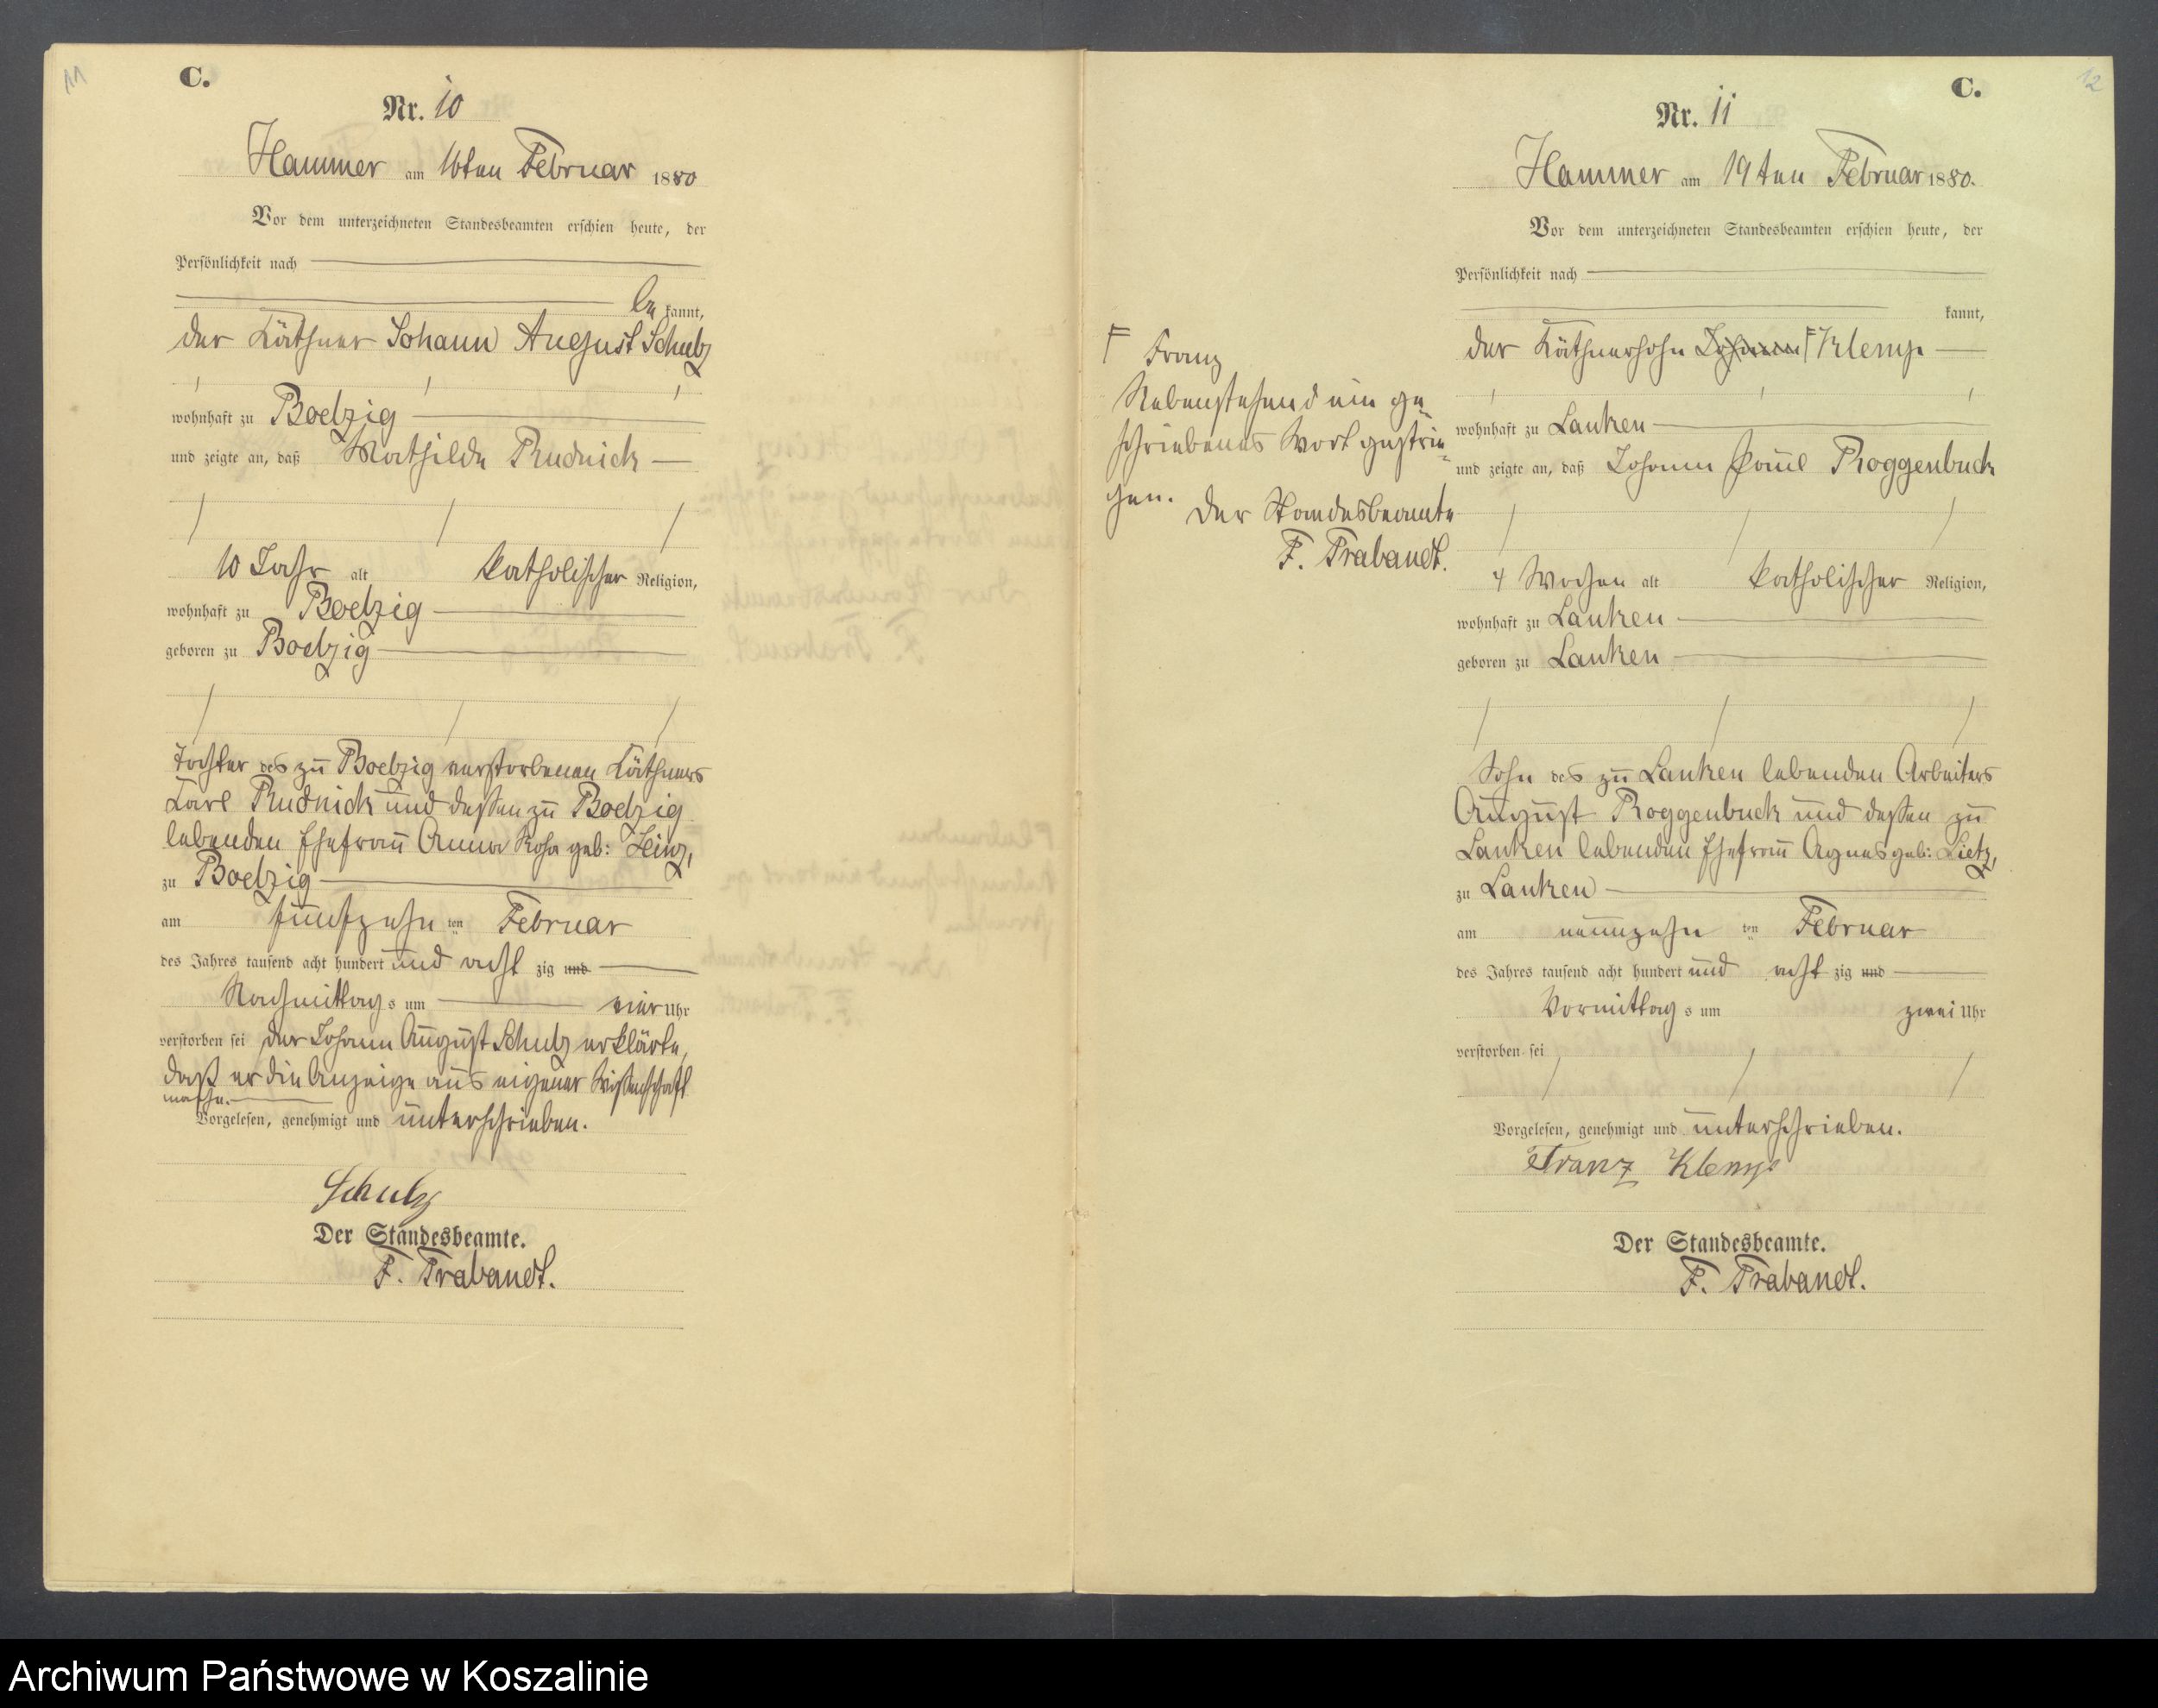 11
C.
Nr. 10
Hammer am 16ten Februar 1880
Vor dem unterzeichneten Standesbeamten erschien heute, der
Persönlichkeit nach
be kannt,
der Käthner Johann August Schulz
wohnhaft zu Boetzig
und zeigte an, daß Mathilde Rudnick
10 Jahr alt katholischer Religion,
wohnhaft zu Boetzig
geboren zu Boetzig
Tochter des zu Boetzig verstorbenen Käthners
Carl Rudnick und dessen zu Boetzig
lebenden Ehefrau Anna Rosa geb: Heinz,
zu Boetzig
am fünfzehn ten Februar
des Jahres tausend acht hundert und acht zig und
Nachmittag s um vier Uhr
verstorben sei der Johann August Schulz erklärte,
daß er die Anzeige aus eigener Wissenschaft
mache.
Vorgelesen, genehmigt und unterschrieben.
Schulz
Der Standesbeamte.
F. Trabandt.
12
C.
Nr. 11
Hammer am 19ten Februar 1880.
Vor dem unterzeichneten Standesbeamten erschien heute, der
Persönlichkeit nach
kannt,
der Käthnersohn Johann F Klemp
F Franz
Nebenstehend ein ge-
schriebenes Wort gestri-
chen.
Der Standesbeamte
F. Trabandt.
wohnhaft zu Lanken
und zeigte an, daß Johann Paul Roggenbuck
4 Wochen alt katholischer Religion,
wohnhaft zu Lanken
geboren zu Lanken
Sohn des zu Lanken lebenden Arbeiters
August Roggenbuck und dessen zu
Lanken lebenden Ehefrau Agnes geb: Lietz,
zu Lanken
am neunzehn ten Februar
des Jahres tausend acht hundert und acht zig und
Vormittag s um zwei Uhr
verstorben sei
Vorgelesen, genehmigt und unterschrieben.
Franz Klemp
Der Standesbeamte.
F. Trabandt.
Archiwum Państwowe w Koszalinie